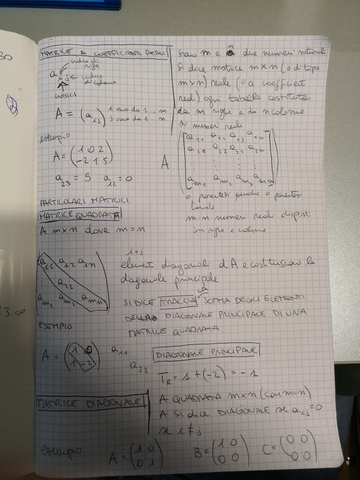 MATRICE A COEFFICIENTI REALI
indice di riga
a i j → indice di colonna
INDICI
A = (a i j) i varia da 1 .. m
j varia da 1 .. n
esempio
A = (1 0 2
-2 1 5)
a 23 = 5 a 12 = 0
Siano m e n due numeri naturali
si dice matrice m×n (o di tipo
m×n) reale (o a coefficienti
reali) ogni tabella costituita
da m righe e da n colonne
di numeri reali
A
a11 a12 a13 a1n
a21 a22 a23 a2n
am1 am2 am3 amn
o parentesi quadre o parentesi
tonde
m n numeri reali disposti
in righe e colonne
PARTICOLARI MATRICI
MATRICE QUADRATA
A m×n dove m=n
i=j
a11 a12 a1n
a21 a22
am1 am2 amn
elementi diagonali di A e costituiscono la
diagonale principale
SI DICE TRACCIA LA SOMMA DEGLI ELEMENTI
DELLA DIAGONALE PRINCIPALE DI UNA
MATRICE QUADRATA
ESEMPIO
A = (1 0
1 -2) a11
a22
DIAGONALE PRINCIPALE
TR = 1 + (-2) = -1
MATRICE DIAGONALE
A QUADRATA m×n (con m=n)
A SI DICE DIAGONALE se aij=0
se i≠j
esempio
A = (1 0
0 1) B = (1 0
0 0) C = (0 0
0 0)